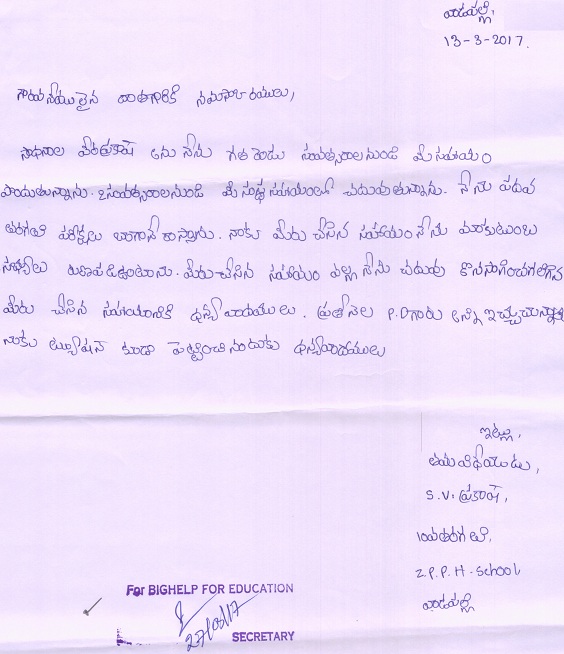 వాడపల్లి,
13-3-2017.
గౌరవనీయులైన దాతగారికి నమస్కారములు,
సాధనాల వీరప్రకాష్ అను నేను గత రెండు సంవత్సరాలనుండి మీ సహాయం
పొందుతున్నాను. 2సంవత్సరాలనుండి మీ సంస్థ సహాయంతో చదువుతున్నాను. నేను పదవ
తరగతి పరీక్షలు బాగానే రాస్తాను. నాకు మీరు చేసిన సహాయం నేను మాకుటుంబ
సభ్యులు రుణపడిఉంటాను. మీరుచేసిన సహాయం వల్ల నేను చదువు కొనసాగించగలిగాను
మీరు చేసిన సహాయానికి ధన్యవాదములు. ప్రతినెల P.Dగారు అన్ని ఇచ్చుచున్నారు
నాకు ట్యూషన్ కూడా పెట్టించినందుకు ధన్యవాదములు
ఇట్లు,
తమవిధేయుడు,
S.V.ప్రకాష్,
10వతరగతి,
Z.P.P.H-School
వాడపల్లి
For BIGHELP FOR EDUCATION
SECRETARY